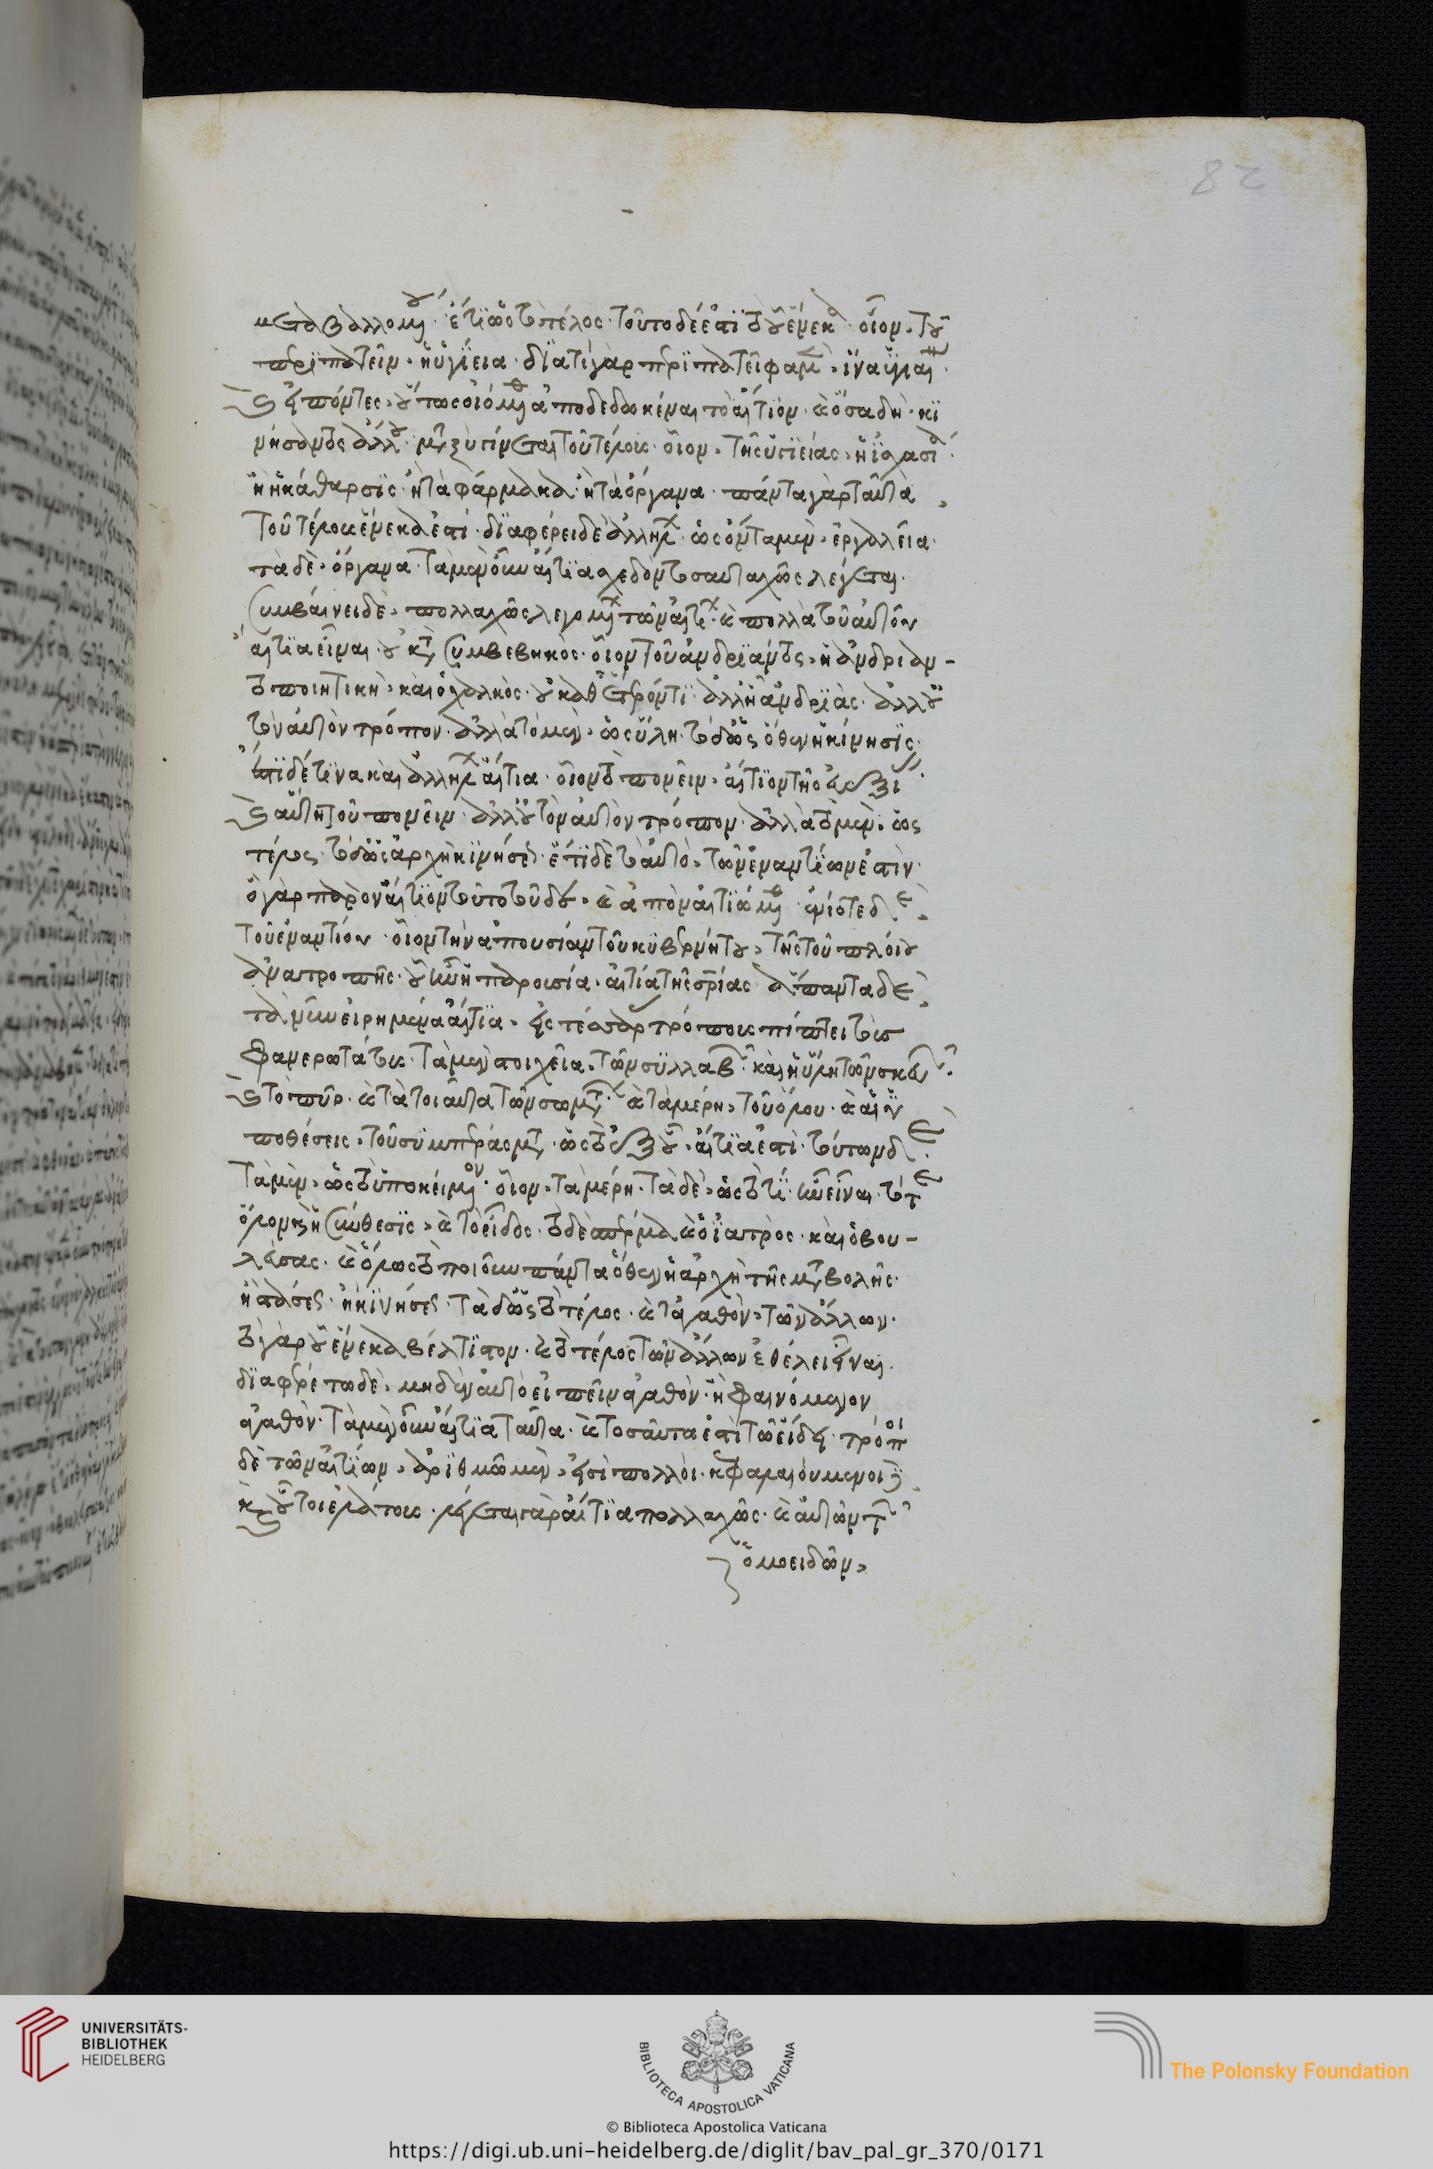 μεταβαλλομένου· ἔτι ὡς τὸ τέλος· τοῦτο δέ ἐστι τὸ οὗ ἕνεκα· οἷον τοῦ
περιπατεῖν ἡ ὑγίεια· διὰ τί γὰρ περιπατεῖ φαμέν· ἵνα ὑγιαίνῃ·
καὶ εἰπόντες οὕτως οἰόμεθα ἀποδεδωκέναι τὸ αἴτιον· καὶ ὅσα δὴ κι
νήσαντος ἄλλου μεταξὺ γίνεται τοῦ τέλους· οἷον τῆς ὑγιείας ἡ ἰσχνασία·
ἢ ἡ κάθαρσις· ἢ τὰ φάρμακα· ἢ τὰ ὄργανα· πάντα γὰρ ταῦτα
τοῦ τέλους ἕνεκά ἐστι· διαφέρει δὲ ἀλλήλων· ὡς ὄντα τὰ μὲν ἐργαλεῖα·
τὰ δὲ ὄργανα· τὰ μὲν οὖν αἴτια σχεδὸν τοσαυταχῶς λέγεται·
συμβαίνει δὲ πολλαχῶς λεγομένων τῶν αἰτίων· καὶ πολλὰ τοῦ αὐτοῦ
αἴτια εἶναι οὐ κατὰ συμβεβηκός· οἷον τοῦ ἀνδριάντος ἡ ἀνδριαν-
τοποιητικὴ καὶ ὁ χαλκός· οὐ καθ' ἕτερόν τι ἀλλ' ᾗ ἀνδριάς· ἀλλ' οὐ
τὸν αὐτὸν τρόπον· ἀλλὰ τὸ μὲν ὡς ὕλη· τὸ δ' ὡς ὅθεν ἡ κίνησις·
ἔστι δέ τινα καὶ ἀλλήλων αἴτια· οἷον τὸ πονεῖν· αἴτιον τῆς εὐεξίας
καὶ αὕτη τοῦ πονεῖν· ἀλλ' οὐ τὸν αὐτὸν τρόπον· ἀλλὰ τὸ μὲν ὡς
τέλος· τὸ δ' ὡς ἀρχὴ κινήσεως· ἔτι δὲ τὸ αὐτὸ τῶν ἐναντίων ἐστίν·
ὃ γὰρ παρὸν αἴτιον τοῦτο τουδί· καὶ ἀπὸν αἰτιώμεθα ἐνίοτε
τοῦ ἐναντίου· οἷον τὴν ἀπουσίαν τοῦ κυβερνήτου τῆς τοῦ πλοίου
ἀνατροπῆς· οὗ ἦν ἡ παρουσία αἰτία τῆς σωτηρίας· ἅπαντα δὲ
τὰ νῦν εἰρημένα αἴτια εἰς τέσσαρας τρόπους πίπτει τοὺς
φανερωτάτους· τὰ μὲν στοιχεῖα τῶν συλλαβῶν· καὶ ἡ ὕλη τῶν σκευαστῶν·
καὶ τὸ πῦρ· καὶ τὰ τοιαῦτα τῶν σωμάτων· καὶ τὰ μέρη τοῦ ὅλου· καὶ αἱ ὑ
ποθέσεις τοῦ συμπεράσματος· ὡς τὸ ἐξ οὗ αἴτιά ἐστι· τούτων δὲ
τὰ μὲν ὡς τὸ ὑποκείμενον· οἷον τὰ μέρη· τὰ δὲ ὡς τὸ τί ἦν εἶναι· τό τε
ὅλον καὶ ἡ σύνθεσις καὶ τὸ εἶδος· τὸ δὲ σπέρμα καὶ ὁ ἰατρός· καὶ ὁ βου-
λεύσας· καὶ ὅλως τὸ ποιοῦν πάντα ὅθεν ἡ ἀρχὴ τῆς μεταβολῆς·
ἢ στάσεως· ἢ κινήσεως· τὰ δ' ὡς τὸ τέλος· καὶ τἀγαθὸν τῶν ἄλλων·
τὸ γὰρ οὗ ἕνεκα βέλτιστον· καὶ τὸ τέλος τῶν ἄλλων ἐθέλει εἶναι·
διαφερέτω δὲ μηδὲν αὐτὸ εἰπεῖν ἀγαθὸν· ἢ φαινόμενον
ἀγαθόν· τὰ μὲν οὖν αἴτια ταῦτα· καὶ τοσαῦτά ἐστι τῷ εἴδει· τρόποι
δὲ τῶν αἰτίων ἀριθμῷ μέν εἰσι πολλοί· κεφαλαιούμενοι δὲ
καὶ οὗτοι ἐλάττους· λέγεται γὰρ αἴτια πολλαχῶς· καὶ αὐτῶν τῶν
ὁμοειδῶν
82
UNIVERSITÄTS-
BIBLIOTHEK
HEIDELBERG
BIBLIOTECA APOSTOLICA VATICANA
The Polonsky Foundation
© Biblioteca Apostolica Vaticana
https://digi.ub.uni-heidelberg.de/diglit/bav_pal_gr_370/0171